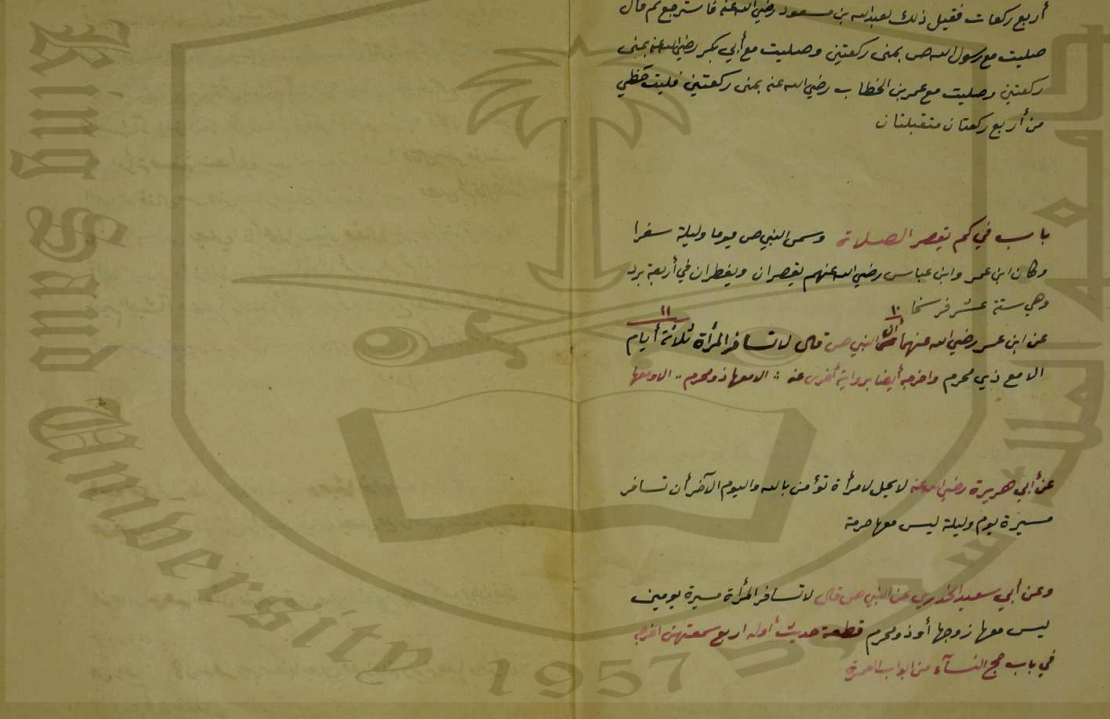 أربع ركعات فقيل ذلك لعبدالله بن مسعود رضي الله عنه فاسترجع ثم قال
صليت مع رسول الله ص بمنى ركعتين وصليت مع أبي بكر رضي الله عنه بمنى
ركعتين وصليت مع عمر بن الخطاب رضي الله عنه بمنى ركعتين فليت حظي
من أربع ركعتان متقبلتان
باب في كم يقصر الصلاة وسمى النبي ص يوما وليلة سفرا
وكان ابن عمر وابن عباس رضي الله عنهم يقصران ويفطران في أربعة برد
وهي ستة عشر فرسخا
١٠ ١١
عن ابن عمر رضي الله عنهما أن النبي ص قال لا تسافر المرأة ثلاثة أيام
الا مع ذي محرم واخرجه أيضا برواية أخرى عنه :: الا معها ذو محرم :: الا ومعها
عن أبي هريرة رضي الله عنه لا يحل لامرأة تؤمن بالله واليوم الآخر أن تسافر
مسيرة يوم وليلة ليس معها حرمة
وعن أبي سعيد الخدري عن النبي ص قال لا تسافر المرأة مسيرة يومين
ليس معها زوجها أو ذو محرم قطعة حديث أوله اربع سمعتهن اخرجه
في باب حج النسآء من ابواب العمرة
King Saud University
1957
جامعة الملك سعود